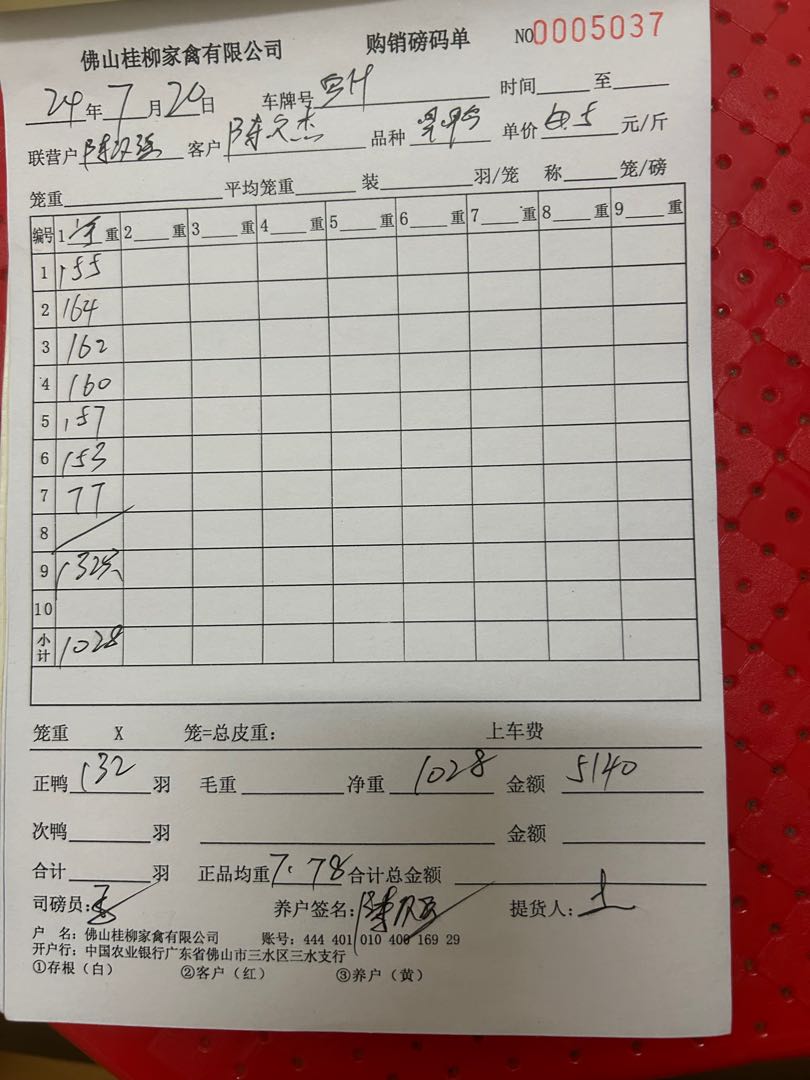 佛山桂柳家禽有限公司 购销磅码单 NO0005037
24年7月20日 车牌号 时间 至
联营户 陈汉强 客户 陈文杰 品种 单价 5 元/斤
笼重 平均笼重 装 羽/笼 称 笼/磅
编号 1 重 2 重 3 重 4 重 5 重 6 重 7 重 8 重 9 重
1 155
2 164
3 162
4 160
5 157
6 153
7 77
8
9 132只
10
小计 1028
笼重 X 笼=总皮重： 上车费
正鸭 132 羽 毛重 净重 1028 金额 5140
次鸭 羽 金额
合计 羽 正品均重 7.78 合计总金额
司磅员： 养户签名： 陈 提货人：
户 名：佛山桂柳家禽有限公司 账号：444 401 010 400 169 29
开户行：中国农业银行广东省佛山市三水区三水支行
①存根（白） ②客户（红） ③养户（黄）